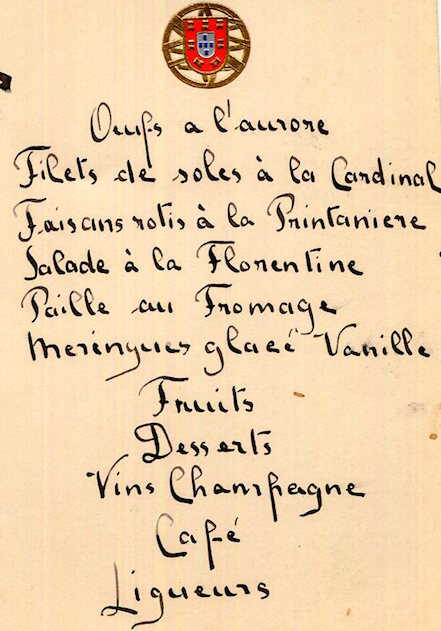 Oeufs a l'aurore
Filets de soles à la Cardinal
Faisans rotis à la Printaniere
Salade à la Florentine
Paille au Fromage
Meringues glacé Vanille
Fruits
Desserts
Vins Champagne
Café
Liqueurs